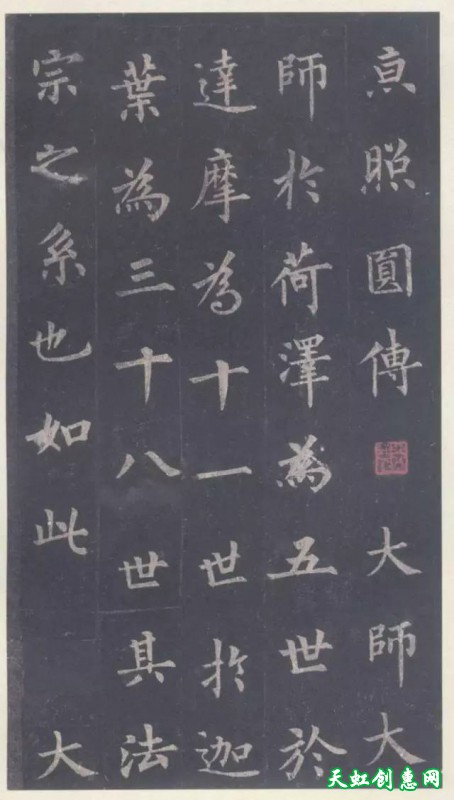 京照圓傳 大師大
師於荷澤為五世於
達摩為十一世於迦
葉為三十八世其法
宗之系也如此 大
天虹创惠网